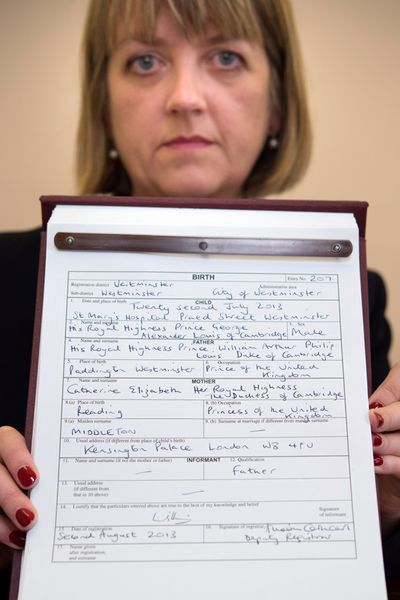 BIRTH Entry No. 207
Registration district Westminster Administrative area
Sub-district Westminster City of Westminster
1. Date and place of birth CHILD
Twenty second July 2013
St Mary's Hospital Praed Street Westminster
2. Name and surname 3. Sex
His Royal Highness Prince George
Alexander Louis of Cambridge Male
4. Name and surname FATHER
His Royal Highness Prince William Arthur Philip
Louis Duke of Cambridge
5. Place of birth 6. Occupation
Paddington Westminster Prince of the United
Kingdom
7. Name and surname MOTHER
Catherine Elizabeth Her Royal Highness
The Duchess of Cambridge
8.(a) Place of birth 8.(b) Occupation
Reading Princess of the United
Kingdom
9.(a) Maiden surname 9.(b) Surname at marriage if different from maiden surname
MIDDLETON
10. Usual address (if different from place of child's birth)
Kensington Palace London W8 4PU
11. Name and surname (if not the mother or father) INFORMANT 12. Qualification
Father
13. Usual address
(if different from
that in 10 above)
14. I certify that the particulars entered above are true to the best of my knowledge and belief
Signature
of informant
15. Date of registration 16. Signature of registrar
Second August 2013 Deputy Registrar
17. Name given
after registration,
and surname